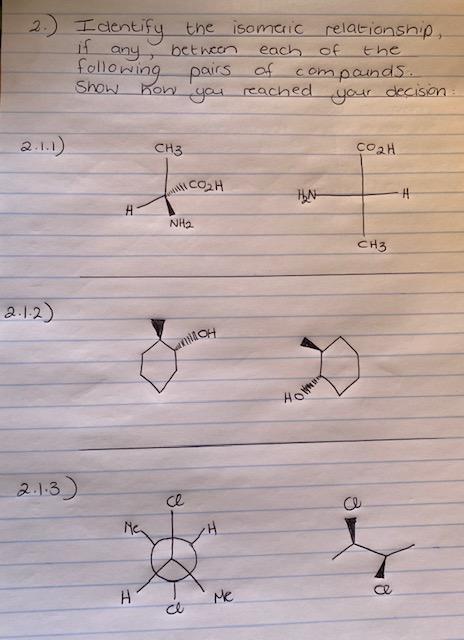 2.) Identify the isomeric relationship,
if any, between each of the
following pairs of compounds.
Show how you reached your decision:
2.1.1)
CH3
CO2H
H
NH2
CO2H
H2N
H
CH3
2.1.2)
OH
HO
2.1.3)
Cl
Me
H
H
Cl
Me
Cl
Cl